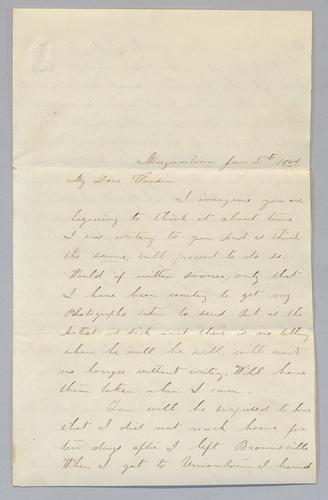 Morgantown Jan 5th 1864
My Dear Cousin
I imagine you are
beginning to think it about time
I was writing to you, and as I think
the same, will proceed to do so.
Would of written sooner, only that
I have been wanting to get my
Photographs taken to send. But as the
Artist is sick and there is no telling
when he will be well, will wait
no longer without writing. Will have
them taken when I can.
You will be surprised to know
that I did not reach home for
ten days after I left Brownsville
When I got to Uniontown I learned